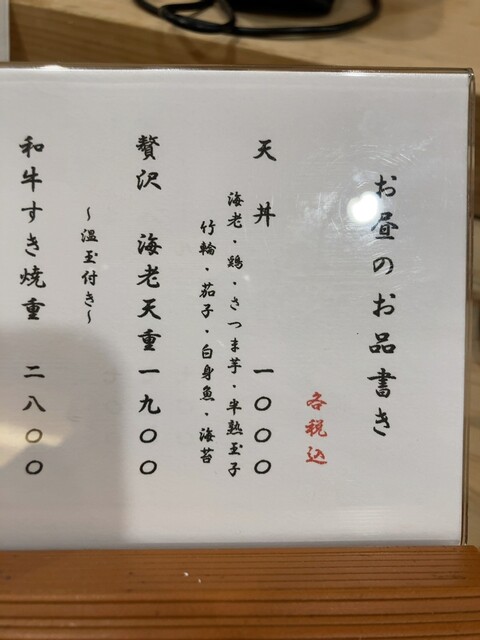 お昼のお品書き
各税込
天丼 一〇〇〇
海老・鶏・さつま芋・半熟玉子
竹輪・茄子・白身魚・海苔
贅沢 海老天重 一九〇〇
～温玉付き～
和牛すき焼重 二八〇〇